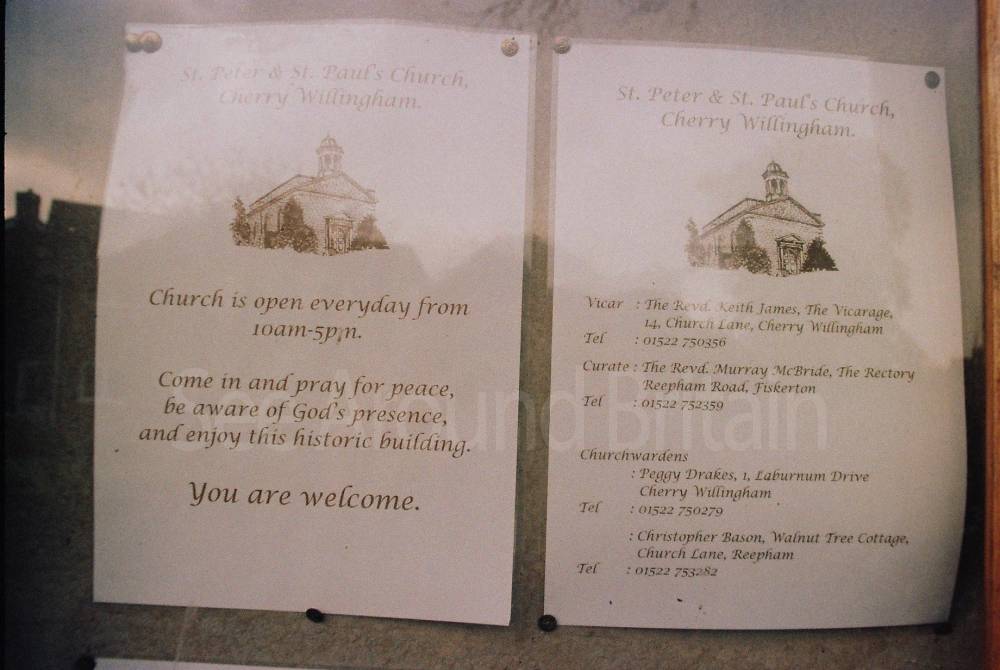 St. Peter & St. Paul's Church,
Cherry Willingham.
Church is open everyday from
10am-5pm.
Come in and pray for peace,
be aware of God's presence,
and enjoy this historic building.
You are welcome.
St. Peter & St. Paul's Church,
Cherry Willingham.
Vicar : The Revd. Keith James, The Vicarage,
14, Church Lane, Cherry Willingham
Tel : 01522 750356
Curate : The Revd. Murray McBride, The Rectory
Reepham Road, Fiskerton
Tel : 01522 752359
Churchwardens
: Peggy Drakes, 1, Laburnum Drive
Cherry Willingham
Tel : 01522 750279
: Christopher Bason, Walnut Tree Cottage,
Church Lane, Reepham
Tel : 01522 753282
See Around Britain